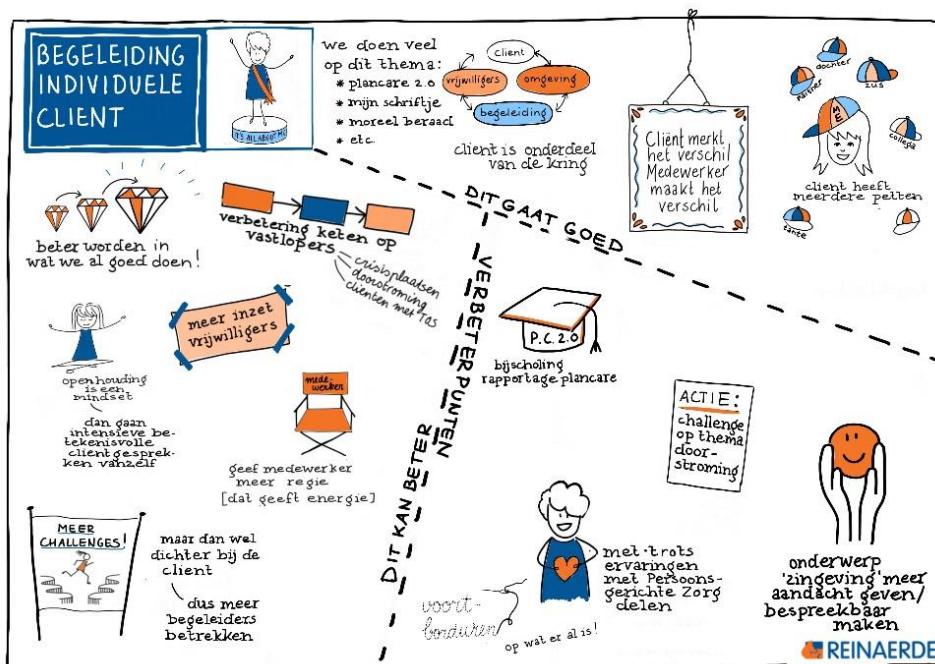 BEGELEIDING
INDIVIDUELE
CLIENT
IT'S ALL ABOUT ME
we doen veel
op dit thema:
* plancare 2.0
* mijn schriftje
* moreel beraad
* etc.
client
vrijwilligers
omgeving
begeleiding
client is onderdeel
van de kring
Cliënt merkt
het verschil
Medewerker
maakt het
verschil
dochter
partner
zus
ME
collega
client heeft
meerdere petten
tante
DIT GAAT GOED
beter worden in
wat we al goed doen!
verbetering keten op
vastlopers
crisisplaatsen
doorstroming
cliënten met Tas
meer inzet
vrijwilligers
open houding
is een
mindset
dan gaan
intensieve be-
tekenisvolle
client gesprek-
ken vanzelf
mede-
werker
geef medewerker
meer regie
[dat geeft energie]
MEER
CHALLENGES!
maar dan wel
dichter bij de
client
dus meer
begeleiders
betrekken
DIT KAN BETER
VERBETERPUNTEN
P.C. 2.0
bijscholing
rapportage plancare
ACTIE:
challenge
op thema
door-
stroming
met trots
ervaringen
met Persoons-
gerichte Zorg
delen
voort-
borduren
op wat er al is!
onderwerp
'zingeving' meer
aandacht geven/
bespreekbaar
maken
REINAERDE